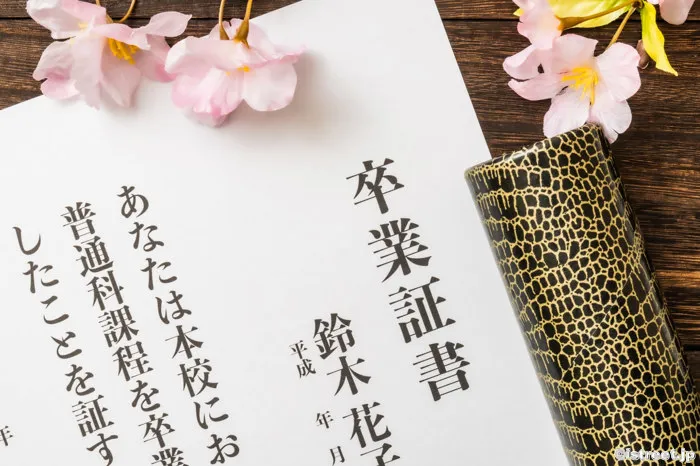 卒業証書
鈴木花子
平成 年 月
あなたは本校にお
普通科課程を卒業
したことを証す
年